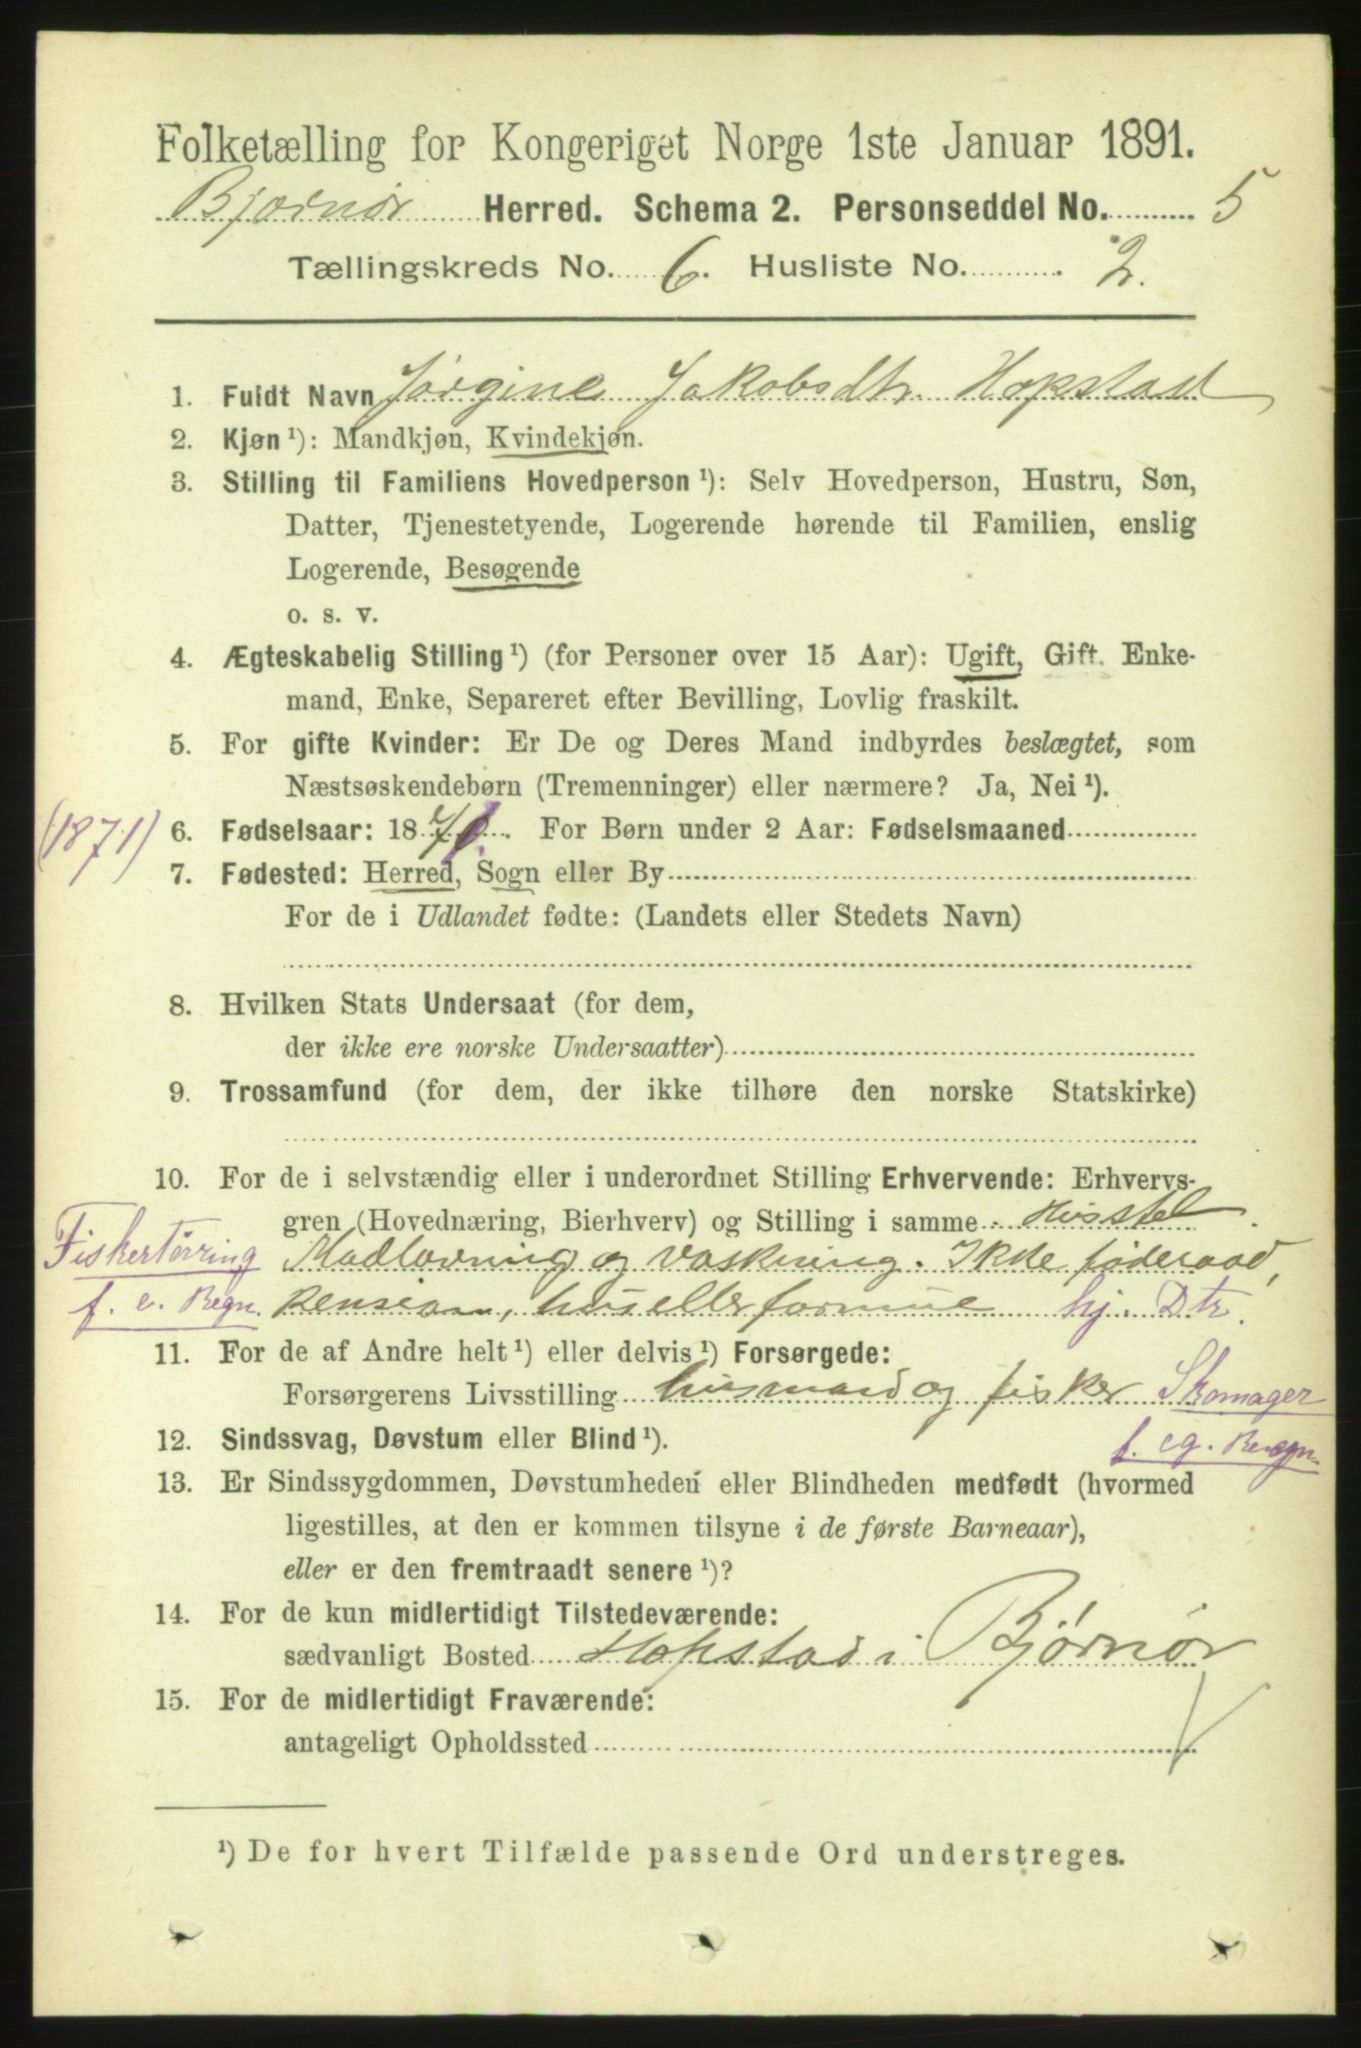 Folketælling for Kongeriget Norge 1ste Januar 1891.
Bjørnør Herred. Schema 2. Personseddel No. 5
Tællingskreds No. 6. Husliste No. 2.
1. Fuldt Navn Jørgine Jakobsdtr. Hopstad
2. Kjøn ¹): Mandkjøn, Kvindekjøn.
3. Stilling til Familiens Hovedperson ¹): Selv Hovedperson, Hustru, Søn,
Datter, Tjenestetyende, Logerende hørende til Familien, enslig
Logerende, Besøgende
o. s. v.
4. Ægteskabelig Stilling ¹) (for Personer over 15 Aar): Ugift, Gift. Enke-
mand, Enke, Separeret efter Bevilling, Lovlig fraskilt.
5. For gifte Kvinder: Er De og Deres Mand indbyrdes beslægtet, som
Næstsøskendebørn (Tremenninger) eller nærmere? Ja, Nei ¹).
(1871) 6. Fødselsaar: 1871. For Børn under 2 Aar: Fødselsmaaned
7. Fødested: Herred, Sogn eller By
For de i Udlandet fødte: (Landets eller Stedets Navn)
8. Hvilken Stats Undersaat (for dem,
der ikke ere norske Undersaatter)
9. Trossamfund (for dem, der ikke tilhøre den norske Statskirke)
10. For de i selvstændig eller i underordnet Stilling Erhvervende: Erhvervs-
gren (Hovednæring, Bierhverv) og Stilling i samme Husstel.
Fiskertørring Madlavning og vaskning. Ikke føderaad,
f. e. Regn. Pension, hus eller formue hj. Dtr.
11. For de af Andre helt ¹) eller delvis ¹) Forsørgede:
Forsørgerens Livsstilling husmand og fisker Skomager
f. eg. Regn.
12. Sindssvag, Døvstum eller Blind ¹).
13. Er Sindssygdommen, Døvstumheden eller Blindheden medfødt (hvormed
ligestilles, at den er kommen tilsyne i de første Barneaar),
eller er den fremtraadt senere ¹)?
14. For de kun midlertidigt Tilstedeværende:
sædvanligt Bosted Hopstad i Bjørnør
15. For de midlertidigt Fraværende:
antageligt Opholdssted
¹) De for hvert Tilfælde passende Ord understreges.